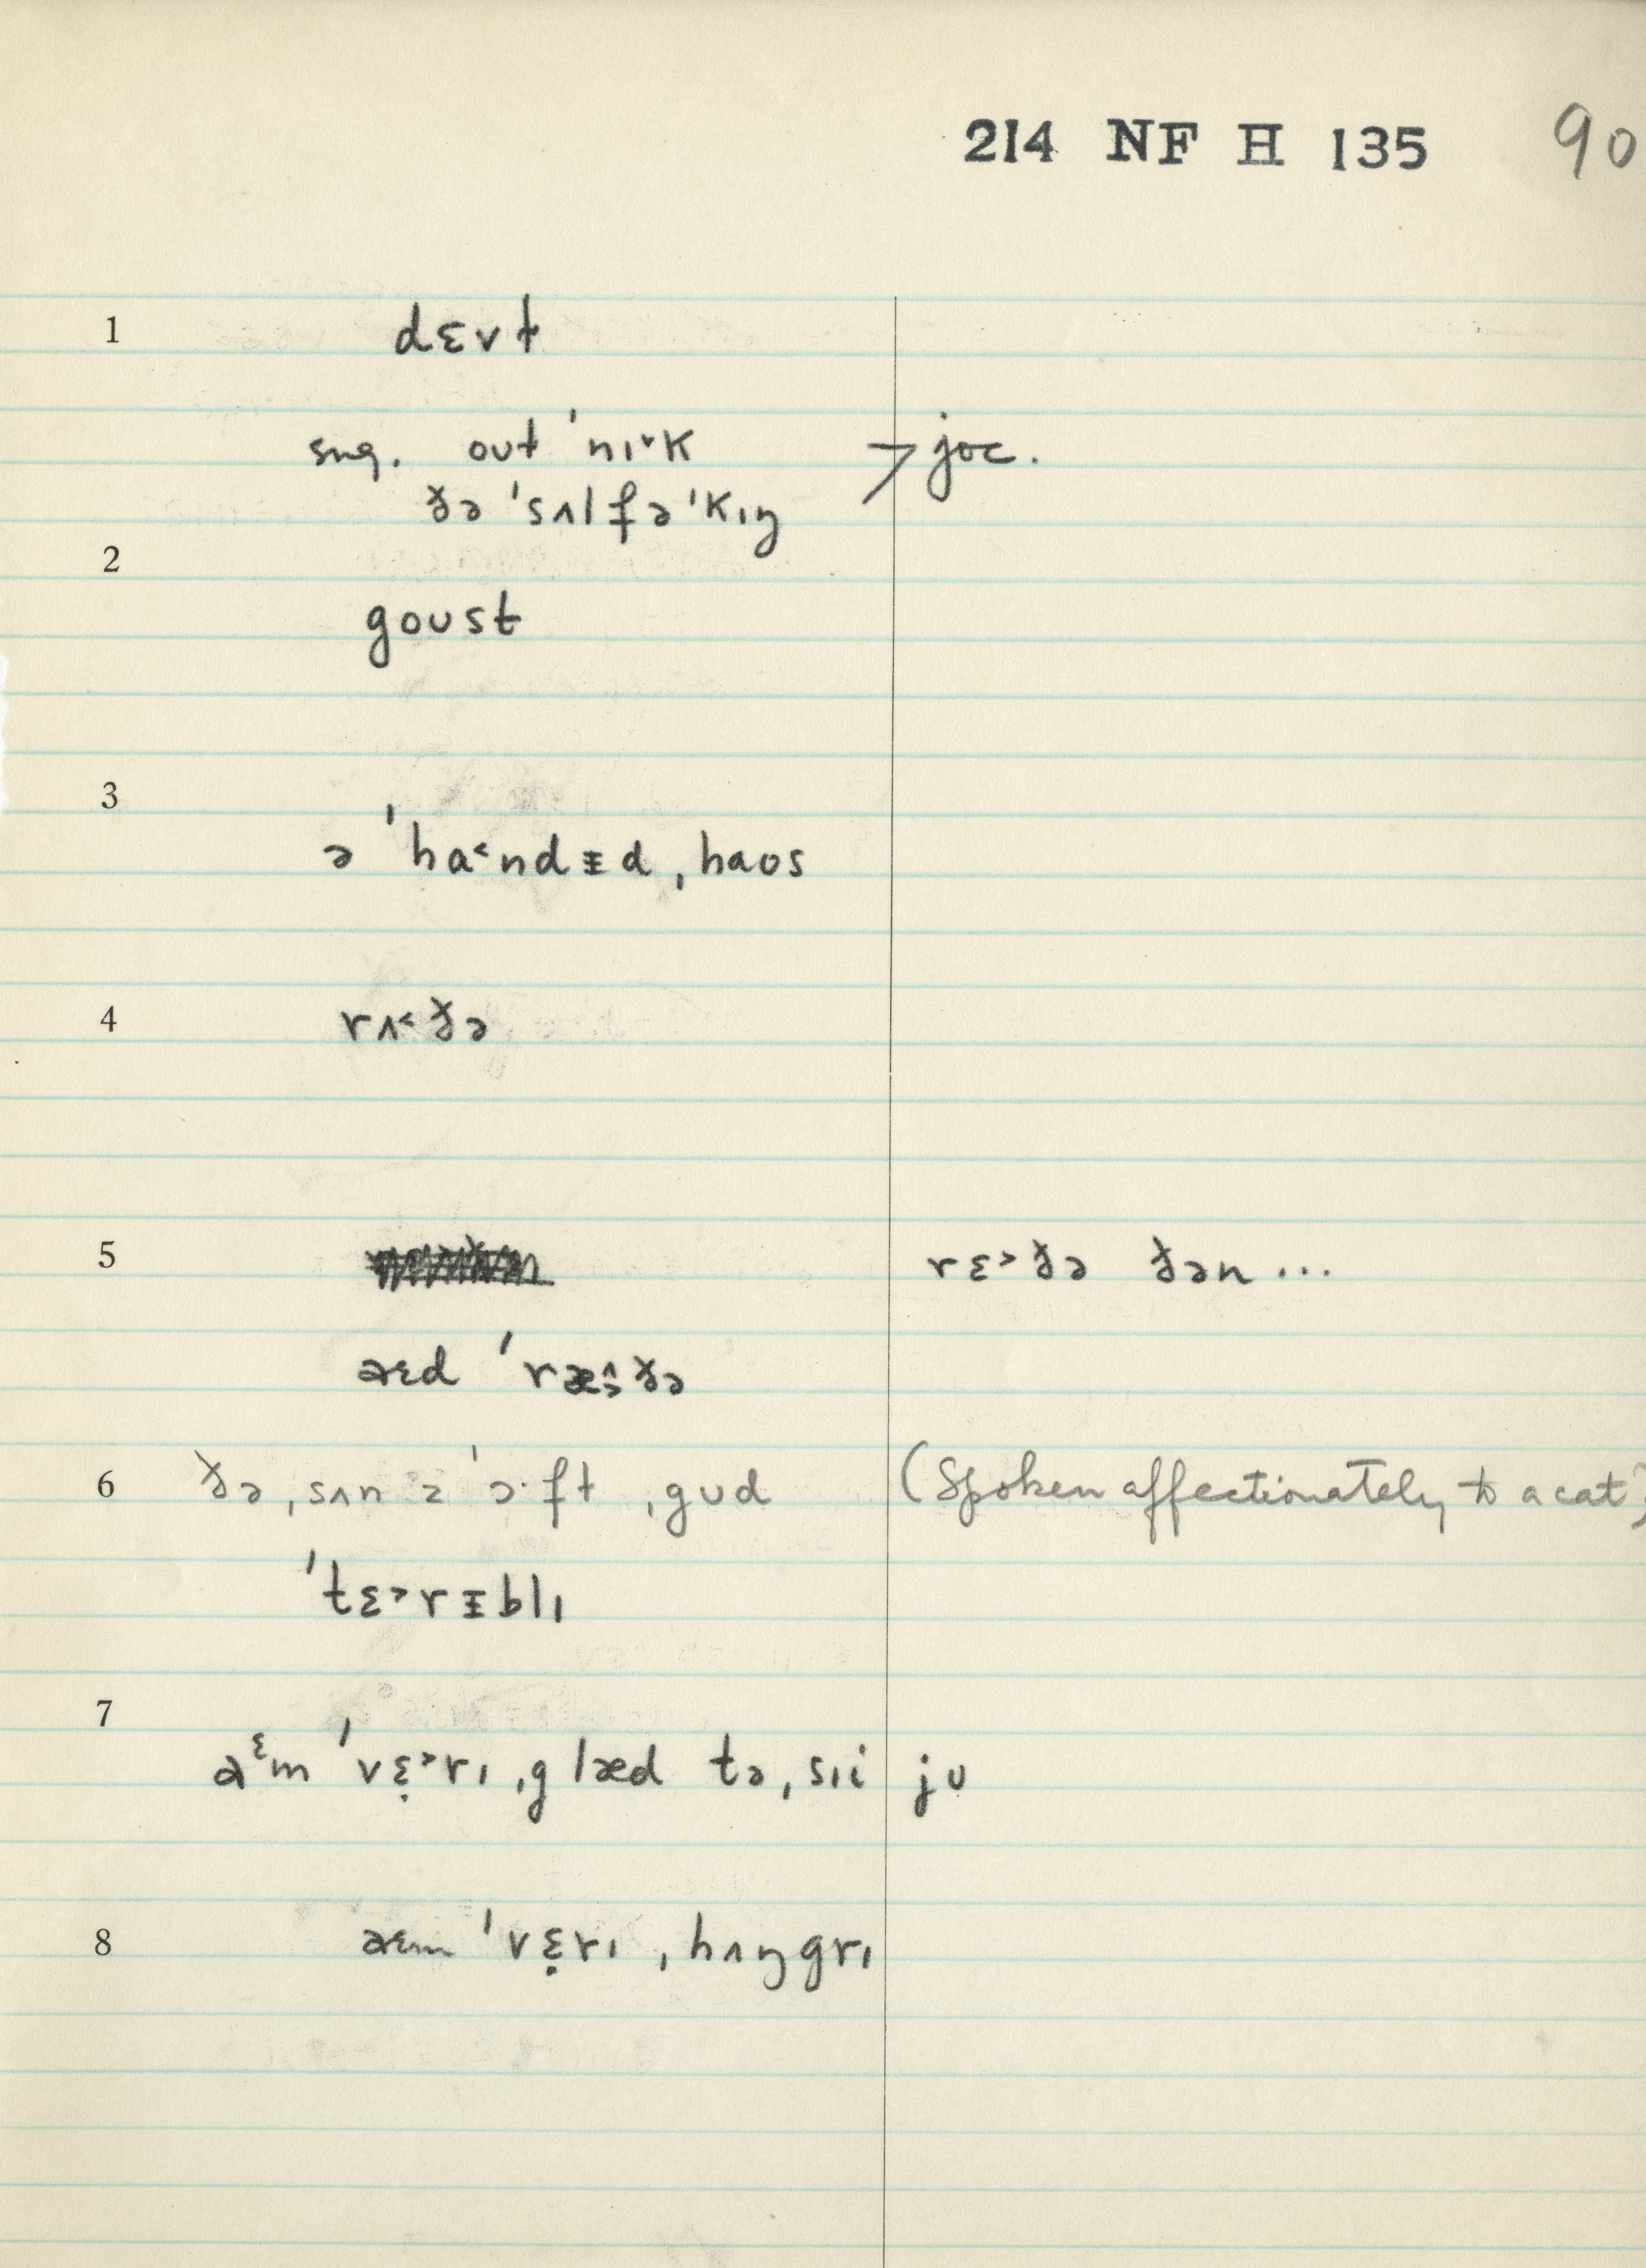 214 NF H 135 90
1 dɛvɫ
sug. oʊɫ ˈnɪ˅k → joc.
ðə ˈsʌlfəˈkɪŋ
2
goust
3
ə ˈha˂ndᵻd ˌhaʊs
4 rʌ˂ðə
5 rɛ˃ðə ðən ...
aɛd ˈræ̂ːðə
6 ðə ˌsʌn ə ˈɔ·ft ˌgʊd (Spoken affectionately to a cat)
ˈtɛ˃rᵻblɪ
7
aᵋm ˈvɛ̣˃rɪ ˌglæd tə ˌsɪi jʊ
8 aɛm ˈvɛ̣rɪ ˌhʌŋgrɪ